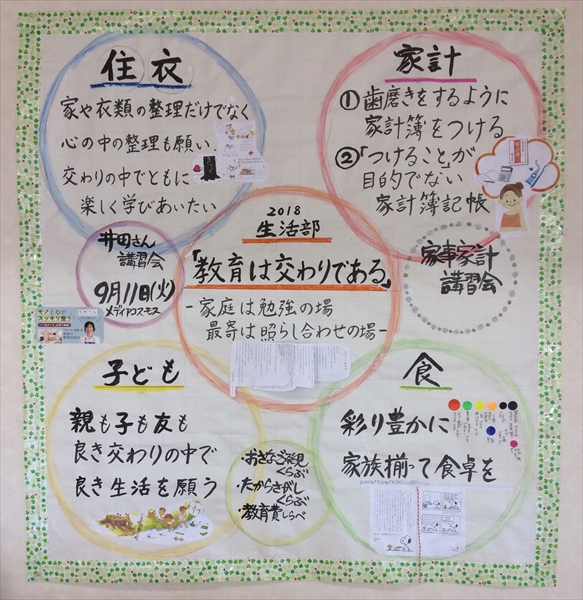 住衣
家や衣類の整理だけでなく
心の中の整理も願い、
交わりの中でともに
楽しく学びあいたい
家計
①歯磨きをするように
家計簿をつける
②「つけること」が
目的でない
家計簿記帳
2018
生活部
「教育は交わりである」
-家庭は勉強の場
最寄は照らし合わせの場-
井田さん
講習会
9月11日(火)
メディアコスモス
家事家計
講習会
モノと心が
スッキリ整う
子ども
親も子も友も
良き交わりの中で
良き生活を願う
・おさなご発見
くらぶ
・たからさがし
くらぶ
・教育費しらべ
食
彩り豊かに
家族揃って食卓を